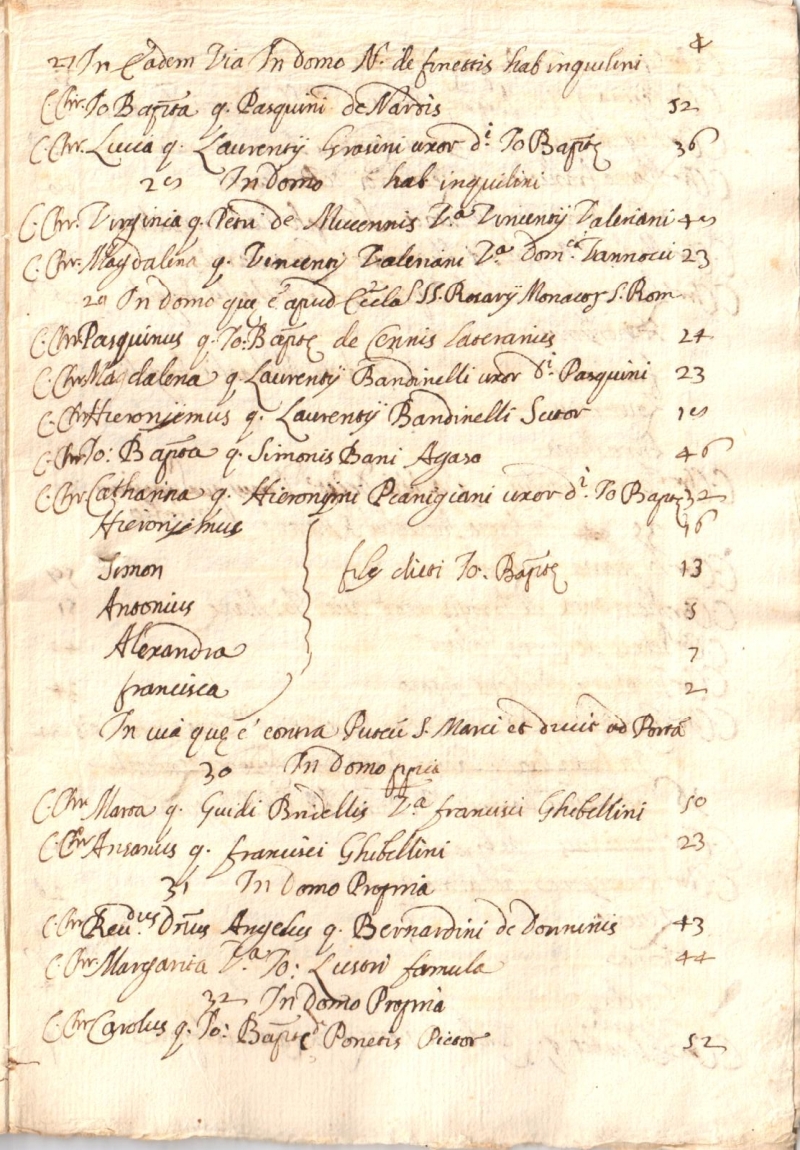 4
27 In Eadem Via In domo N. de finettis hab inquilini
C. Chr. Io Bapta q. Pasquini de Nardis 52
C. Chr. Lucia q. Laurentij Grasini uxor di Io Baptę 36
28 In Domo hab inquilini
C. Chr. Virginia q. Petri de Miccennis Va Vincentij Valeriani 48
C. Chr. Magdalena q. Vincentij Valeriani Va Domci Vannocci 23
29 In domo que ē apud SS. Rosarij S. Rom
C. Chr Pasquinus q. Io: Baptę de Cennis Laterarius 24
C. Chr Magdalena q. Laurentij Bandinelli uxor di Pasquini 23
C. Chr Hieronijmus q. Laurentij Bandinelli Sutor 18
C. Chr Io: Bapta q. Simonis Bani Agaso 46
C. Chr Catharina q. Hieronijmi uxor di Io Baptę 32
Hieronijmus 16
Simon 13
Antonius 5
filij dicti Io. Baptę
Alexandra 7
francisca 2
In uia quę ē contra Puteū S. Marci et ducit ad Portā
30 In Domo ppria
C. Chr Marta q. Guidi Va francisci Ghebellini 50
C. Chr Ansanus q. francisci Ghebellini 23
31 In Domo Propria
C. Chr Reudus Dnus Angelus q. Bernardini de Donninis 43
C. Chr Margarita Va Io: Lustri famula 44
32 In Domo Propria
C. Chr Carolus q. Io: Baptę Ponetis Pictor 52